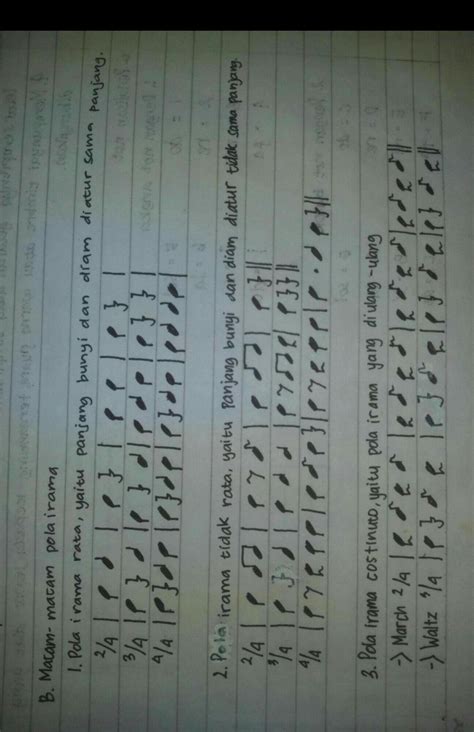 B. Macam-macam pola irama
1. Pola irama rata, yaitu panjang bunyi dan diam diatur sama panjang.
2/4
3/4
4/4
2. Pola irama tidak rata, yaitu panjang bunyi dan diam diatur tidak sama panjang.
2/4
3/4
4/4
3. Pola irama costinuto, yaitu pola irama yang diulang-ulang
-> March 2/4
-> Waltz 3/4